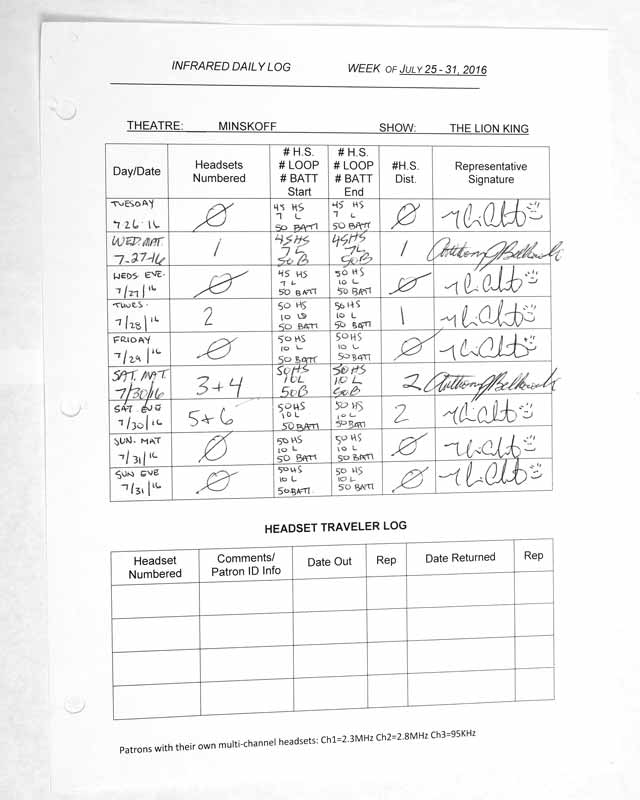 INFRARED DAILY LOG WEEK OF JULY 25 - 31, 2016
THEATRE: MINSKOFF SHOW: THE LION KING
Day/Date
Headsets
Numbered
# H.S.
# LOOP
# BATT
Start
# H.S.
# LOOP
# BATT
End
#H.S.
Dist.
Representative
Signature
TUESDAY
7·26·16
Ø
45 HS
7 L
50 BATT
45 HS
7 L
50 BATT
Ø
WED. MAT.
7-27-16
1
45HS
7L
50B
45HS
7L
50B
1
WEDS EVE.
7/27/16
Ø
45 HS
7 L
50 BATT
50 HS
10 L
50 BATT
Ø
7/28/16
2
50 HS
10 L
50 BATT
50 HS
10 L
50 BATT
1
FRIDAY
7/29/16
Ø
50 HS
10 L
50 BATT
50 HS
10 L
50 BATT
Ø
SAT. MAT.
7/30/16
3+4
50HS
10L
50B
50HS
10 L
50B
2
SAT. EVE
7/30/16
5+6
50HS
10L
50BATT
50 HS
10 L
50 BATT
2
SUN. MAT
7/31/16
Ø
50 HS
10 L
50 BATT
50 HS
10 L
50 BATT
Ø
SUN EVE
7/31/16
Ø
50 HS
10 L
50BATT.
50 HS
10 L
50 BATT
Ø
HEADSET TRAVELER LOG
Headset
Numbered
Comments/
Patron ID Info
Date Out
Rep
Date Returned
Rep
Patrons with their own multi-channel headsets: Ch1=2.3MHz Ch2=2.8MHz Ch3=95KHz